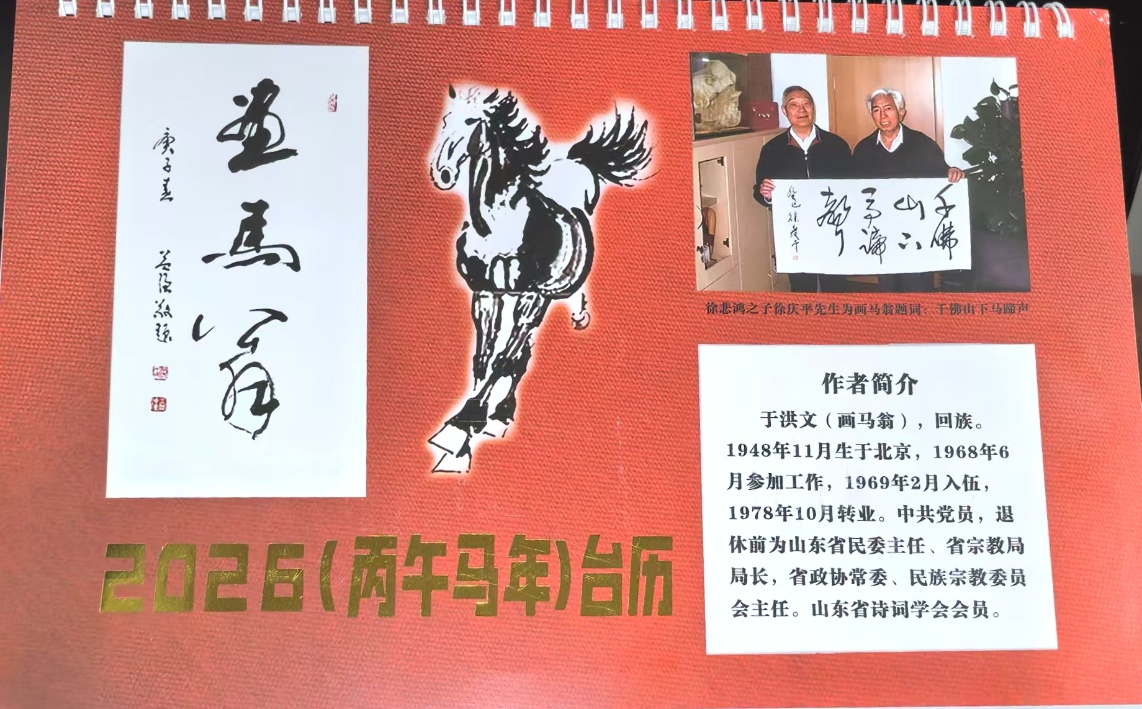 画馬翁
庚子春
敬题
千佛
山下
马蹄
声
癸巳徐庆平
徐悲鸿之子徐庆平先生为画马翁题词：千佛山下马蹄声
作者简介
于洪文（画马翁），回族。
1948年11月生于北京，1968年6
月参加工作，1969年2月入伍，
1978年10月转业。中共党员，退
休前为山东省民委主任、省宗教局
局长，省政协常委、民族宗教委员
会主任。山东省诗词学会会员。
2026(丙午马年)台历